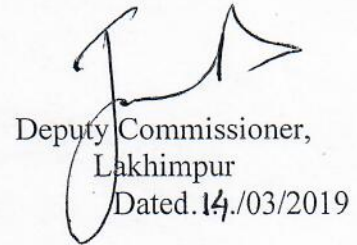 Deputy Commissioner,
Lakhimpur
Dated.14./03/2019